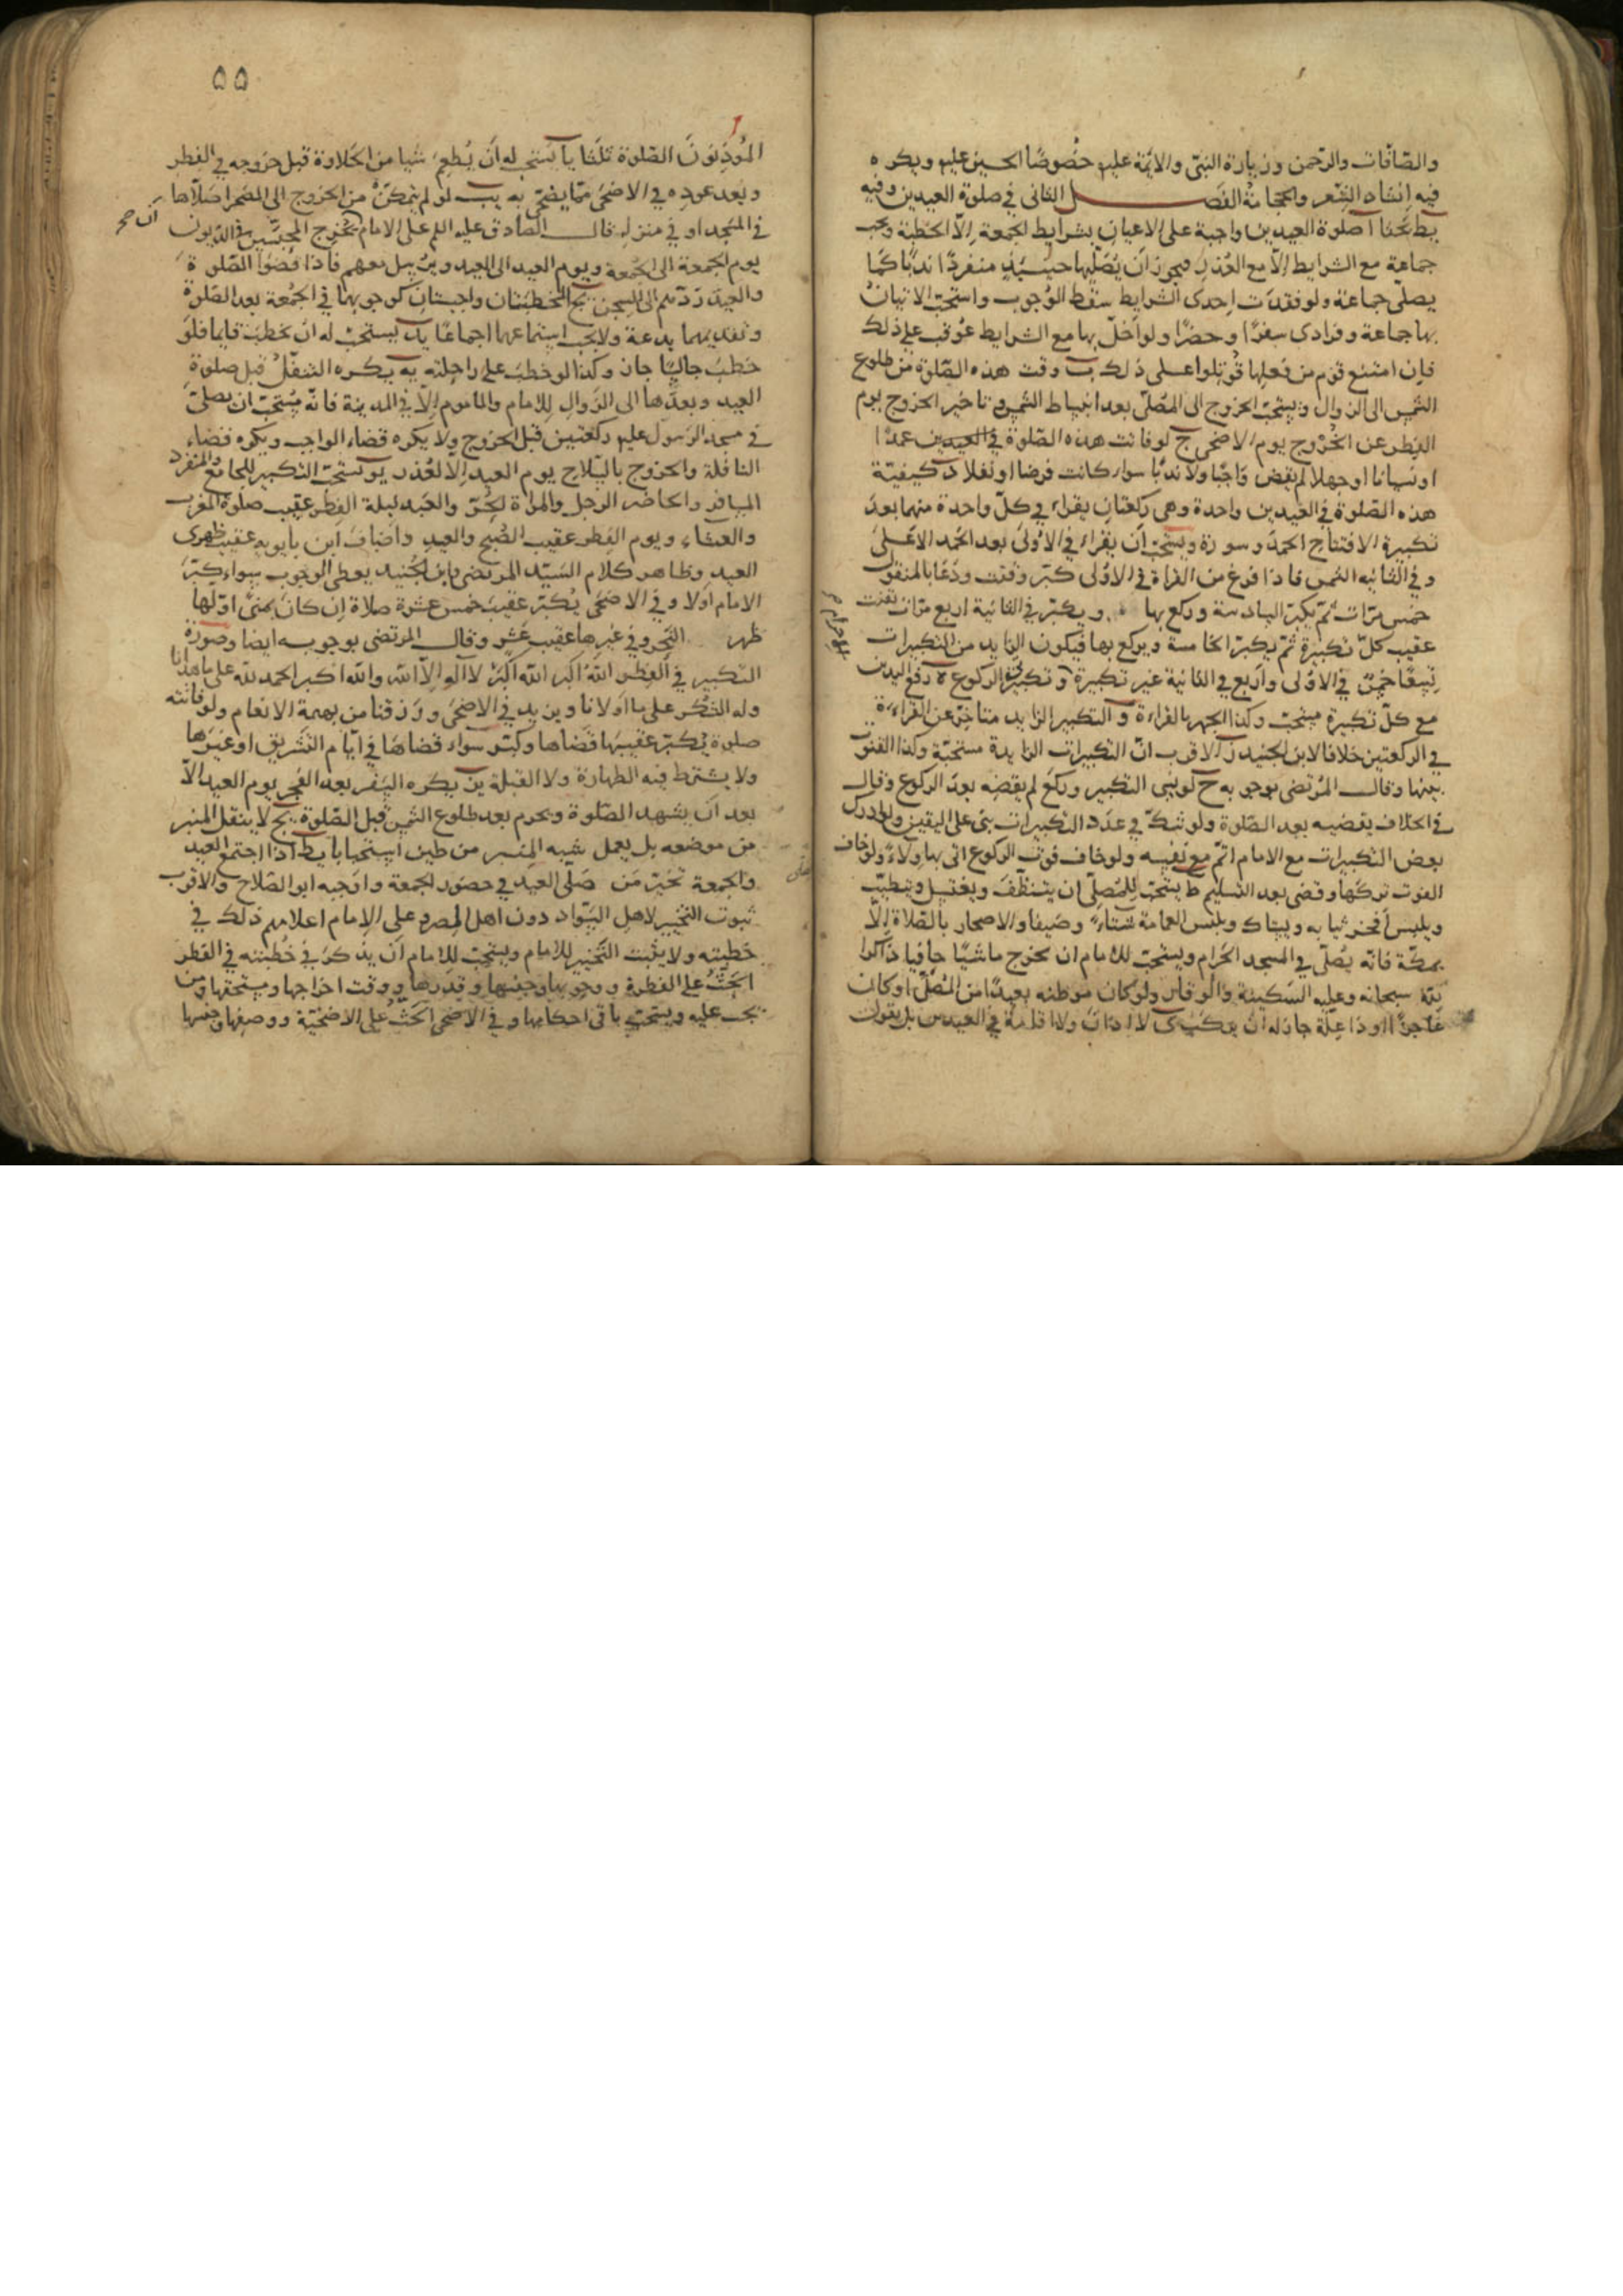 والصافّات والرحمن وزيارة النبيّ والائمّة عليهم خصُوصًا الحسين عليهم ويكره
فيه انشاد الشعر والحجامة الفصل الثانى في صلوة العيدين وفيه
يط بحثا ا صلوة العيدين واجبة على الاعيان بشرايط الجمعة الّا الخطبة ويجب
جماعة مع الشرايط الّا مع العُذر فيجوز ان يُصلّيها حينئذٍ منفردًا ندبًا كما
يصلّى جماعة ولو فقدت احدى الشرايط سقط الوجوب واستحبّ الاتيان
بها جماعة وفرادى سفرًا وحضرًا ولو اخلّ بها مع الشرايط عُوقب على ذلك
فان امتنع قوم من فعلها قُوتلوا على ذلك ب وقت هذه الصّلوة من طلوع
الشمس الى الزوال ويستحبّ الخروج الى المصلّى بعد انبساط الشمس وتاخير الخروج يوم
الفطر عن الخُروج يوم الاضحى ج لو فاتت هذه الصّلوة في العيدين عمدًا
او نسيانا او جهلا لم يقض واجبًا ولا ندبًا سواء كانت فرضا او نفلا د كيفيّة
هذه الصّلوة في العيدين واحدة وهى ركعتان يقراء في كلّ واحدة منهما بعد
تكبيرة الافتتاح الحمد وسورة ويستحبّ أن يقراء في الاولى بعد الحمد الاعلى
وفي الثانية الشمس فاذا فرغ من القراة في الاولى كبّر وقنت ودعا بالمنقول
خمس مرّات ثمّ يكبّر السادسة وركع بها ويكبّر في الثانية اربع مرّات يقنت
عقيب كلّ تكبيرة ثمّ يكبّر الخامسة ويركع بها فيكون الزايد من التكبيرات
تسعًا خمس في الاولى واربع في الثانية غير تكبيرة وتكبيرتى الركوع ه رفع اليدين
مع كلّ تكبيرة مستحبّ وكذا الجهر بالقراءة و التكبير الزايد متاخّر عن القراءة
في الركعتين خلافا لابن الجنيد ز الاقرب انّ التكبيرات الزايدة مستحبّة وكذا القنوت
بينها وقال المُرتضى بوجوبه ح لو نسى التكبير وركع لم يقضه بعد الركوع وقال
في الخلاف يقضيه بعد الصّلوة ولو شكّ في عدد التكبيرات بنى على اليقين ولو ادرك
بعض التكبيرات مع الامام اتمّ مع نفسه ولو خاف فوت الركوع اتى بها ولاءً ولو خاف
الفوت تركها وقضى بعد التسليم ط يستحبّ للمُصلّى ان يتنظّف ويغتسل ويتطيّب
ويلبس أفخر ثيابه ويستاك ويلبس العمامة شتاءً وصيفا والاصحار بالصّلاة الّا
بمكّة فانّه يُصلّى في المسجد الحَرام ويستحبّ للامام ان يخرج ماشيًا حافيا ذاكرا
لله سبحانه وعليه السَكينة والوقار ولو كان موطنه بعيدًا من المُصلّى او كان
عاجزًا او ذا علّة جاز له ان يركب ى لا اذان ولا اقامة في العيدين بل يقول
٥٥
المُؤذِّنونَ الصّلوة ثلثا يا يستحبّ له أن يُطعم شيا من الحلاوة قبل خروجه في الفطر
وبعد عوده في الاضحى ممّا يضحّى به يب لو لم يتمكّن من الخروج الى المصحر صلّاها
في المسجد او في منزله قال الصّادق عليه السّلم على الامام ان يُخرج المحبّسين في الديون
يوم الجمعة الى الجُمعة ويوم العيد الى العيد ويُرسل معهم فاذا قضوا الصّلوة
والعيد ردّهم الى السجن يج الخطبتان واجبتان كوجوبهما في الجُمعة بعد الصّلوة
وتقديمهما بدعة ولا يجب استماعهما اجماعًا يد يستحبّ له ان يخطب قايما فلو
خطب جالسًا جاز وكذا لو خطب على راحلته يه يكره التنفّل قبل صلوة
العيد وبعدها الى الزوال للامام والماموم إلّا في المدينة فانّه يُستحبّ ان يصلّى
في مسجد الرسول عليهم ركعتين قبل الخروج ولا يكره قضاء الواجب ويكره قضاء
النافلة والخروج بالسّلاح يوم العيد الّا لعُذر يو يستحبّ التكبير للجامع والمنفرد
المسافر والحاضر الرجل والمراة الحُرّ والعبد ليلة الفطر عقيب صلوة المغرب
والعشاء ويوم الفطر عقيب الصُبح والعيد واضاف ابن بابويه عقيب ظهرى
العيد وظاهر كلام السّيّد المرتضى وابن الجُنيد يعطى الوجوب سواء كبّر
الامام اولا وفي الاضحى يُكبّر عقيب خمس عشرة صلاة ان كان بمنًى اوّلها
ظهر النحر وفي غيرها عقيب عشر وقال المرتضى بوجوبه ايضا وصورة
التكبير في الفطر الله اكبر الله اكبر لا اله الّا الله والله اكبر الحمد لله على ما هدانا
وله الشكر على ما اولانا ويزيد في الاضحى ورزقنا من بهيمة الانعام ولو فاتته
صلوة يُكبّر عقيبها قضاها وكبّر سواء قضاها في ايّام التشريق او غيرها
ولا يشترط فيه الطهارة ولا القبلة يز يكره السّفر بعد الفجر يوم العيد الّا
بعد ان يشهد الصّلوة ويحرم بعد طلوع الشمس قبل الصّلوة يح لا ينقل المنبر
من موضعه بل يعمل شبه المنبر من طين استحبابا يط اذا اجتمع العيد
والجمعة تخيّر من صلّى العيد في حضور الجمعة واوجبه ابو الصّلاح والاقرب
ثبوت التخيير لاهل السّواد دون اهل المصر وعلى الامام اعلامهم ذلك في
خطبته ولا يثبت التخيير للامام ويستحبّ للامام أن يذكر في خُطبته في الفطر
الحثّ على الفطرة ووجوبها وجنسها وقدرها ووقت اخراجها ومستحقّها ومن
يجب عليه ويستحبّ باقى احكامها وفي الاضحى الحثّ على الاضحيّة ووصفها وجنسها